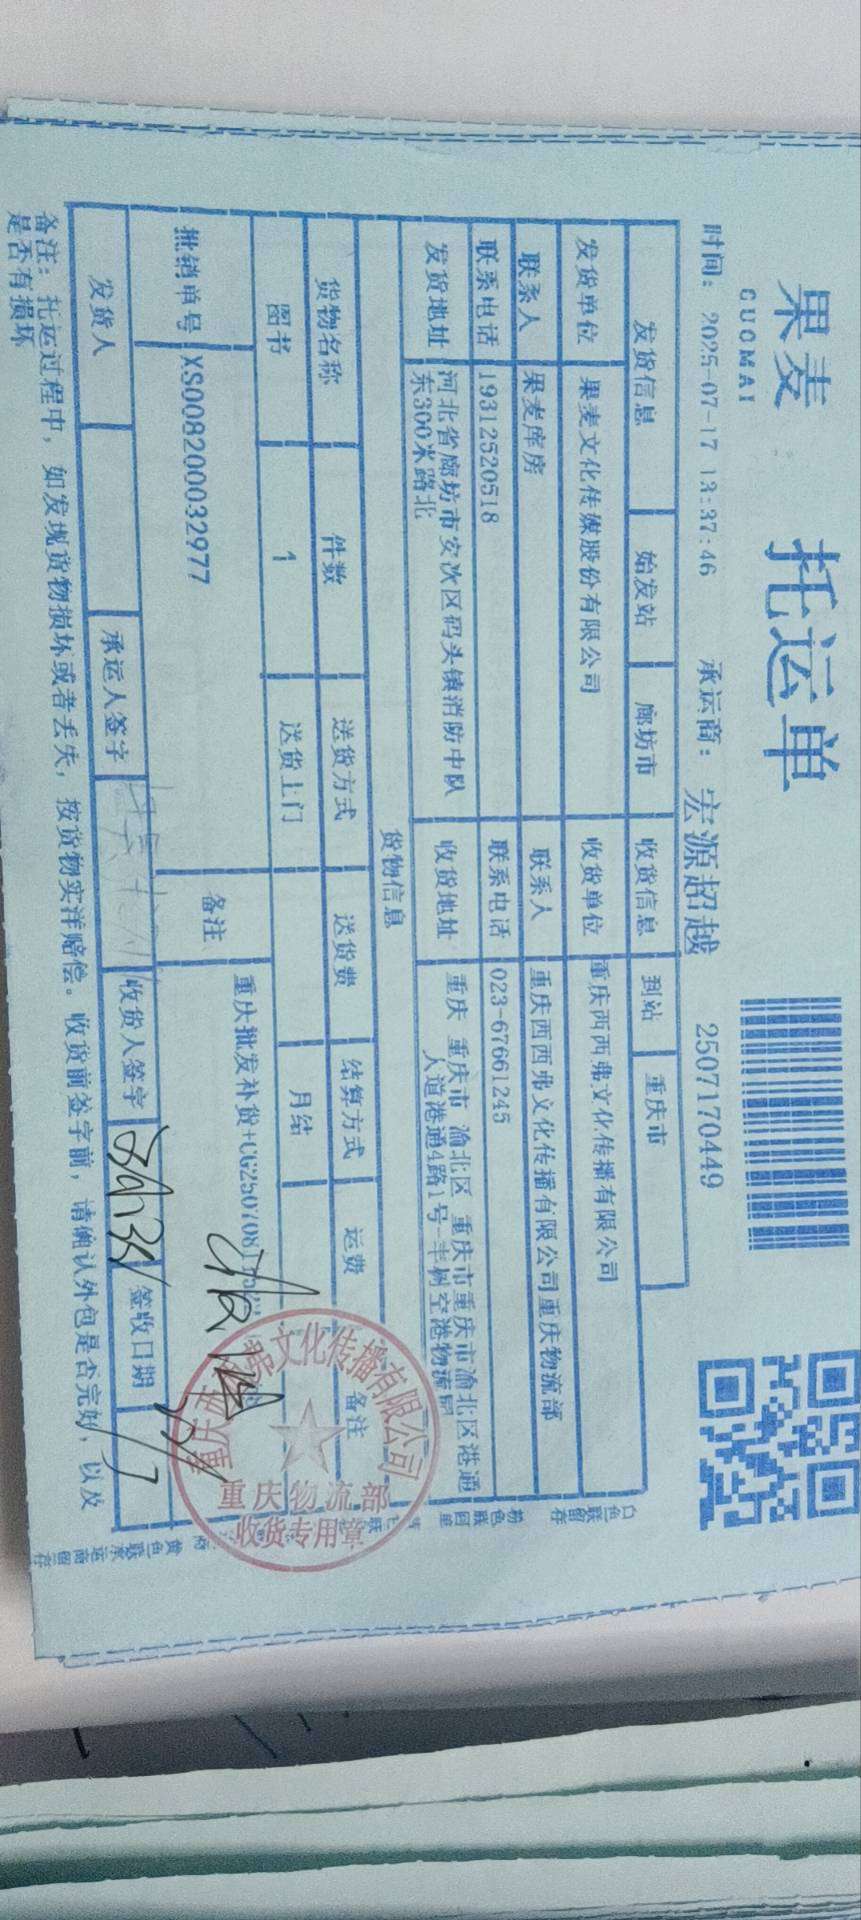 果麦
GUOMAI
托运单
时间: 2025-07-17 13:37:46 承运商: 宏源超越 2507170449
发货信息 始发站 廊坊市 收货信息 到站 重庆市
发货单位 果麦文化传媒股份有限公司 收货单位 重庆西西弗文化传播有限公司
联系人 果麦库房 联系人 重庆西西弗文化传播有限公司重庆物流部
联系电话 19312520518 联系电话 023-67661245
发货地址 河北省廊坊市安次区码头镇消防中队 收货地址 重庆 重庆市 渝北区 重庆市重庆市渝北区港通
东300米路北 大道港通4路1号-丰树空港物流园
货物信息
货物名称 件数 送货方式 送货费 结算方式 运费 备注
图书 1 送货上门 月结
批销单号 XS008200032977 备注 重庆批发补货+CG2507081
发货人 承运人签字 收货人签字 签收日期
备注: 托运过程中, 如发现货物损坏或者丢失, 按货物实洋赔偿。收货前签字前, 请确认外包是否完好, 以及
是否有损坏
白色联留存
粉色联回
黄色联承运商留存
重庆市西西弗文化传播有限公司
重庆物流部
收货专用章